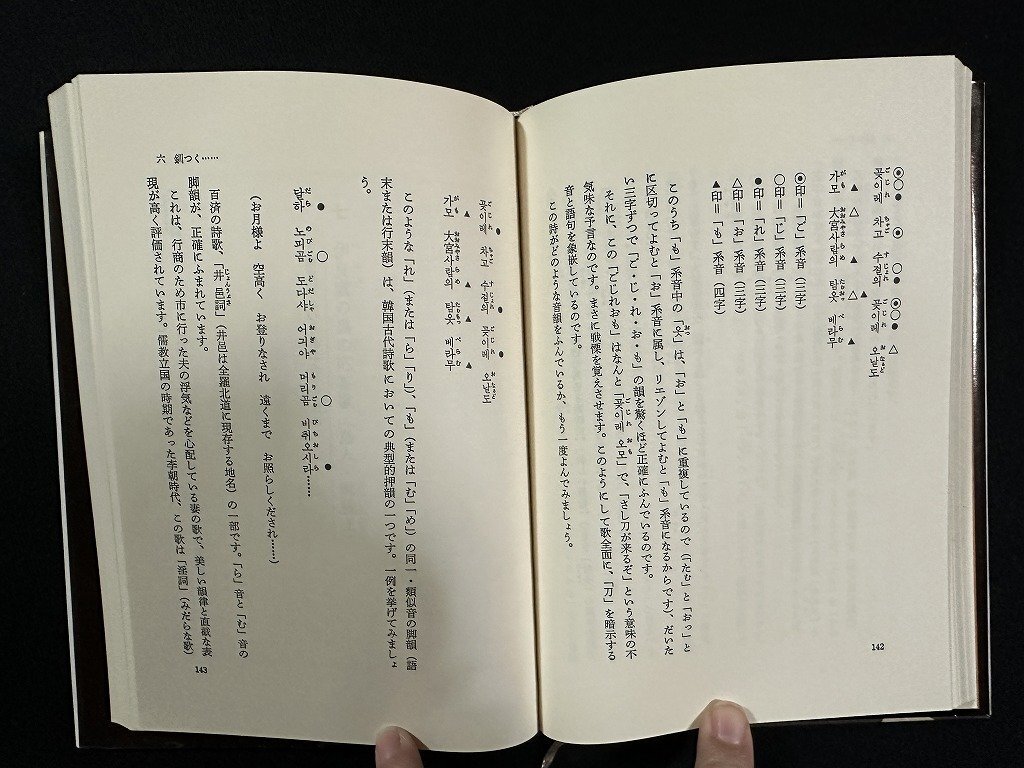 곶이레 차고 수절의 곶이페 오날도
가모 大宮사람의 탐옷 베라무
◉印＝「ど」系音（三字）
○印＝「じ」系音（三字）
●印＝「れ」系音（三字）
△印＝「お」系音（三字）
▲印＝「も」系音（四字）
このうち「も」系音中の「옷」は、「お」と「も」に重複しているので（「たむ」と「おっ」と
に区切ってよむと「お」系音に属し、リエゾンしてよむと「も」系音になるからです）、だいた
い三字ずつで「ど・じ・れ・お・も」の韻を驚くほど正確にふんでいるのです。
それに、この「どじれおも」はなんと「곶이레 오모」で、「さし刀が来るぞ」という意味の不
気味な予言なのです。まさに戦慄を覚えさせます。このようにして歌全面に、「刀」を暗示する
音と語句を象嵌しているのです。
この詩がどのような音韻をふんでいるか、もう一度よんでみましょう。
142
곶이레 차고 수절의 곶이페 오날도
가모 大宮사람의 탐옷 베라무
このような「れ」（または「ら」「り」）、「も」（または「む」「め」）の同一・類似音の脚韻（語
末または行末韻）は、韓国古代詩歌においての典型的押韻の一つです。一例を挙げてみましょ
う。
달하 노피곰 도다샤 어긔야 머리곰 비취오시라……
（お月様よ 空高く お登りなされ 遠くまで お照らしくだされ……）
百済の詩歌、「井邑詞」（井邑は全羅北道に現存する地名）の一部です。「ら」音と「む」音の
脚韻が、正確にふまれています。
これは、行商のため市に行った夫の浮気などを心配している妻の歌で、美しい韻律と直截な表
現が高く評価されています。儒教立国の時期であった李朝時代、この歌は「淫詞」（みだらな歌）
六 釧つく……
143